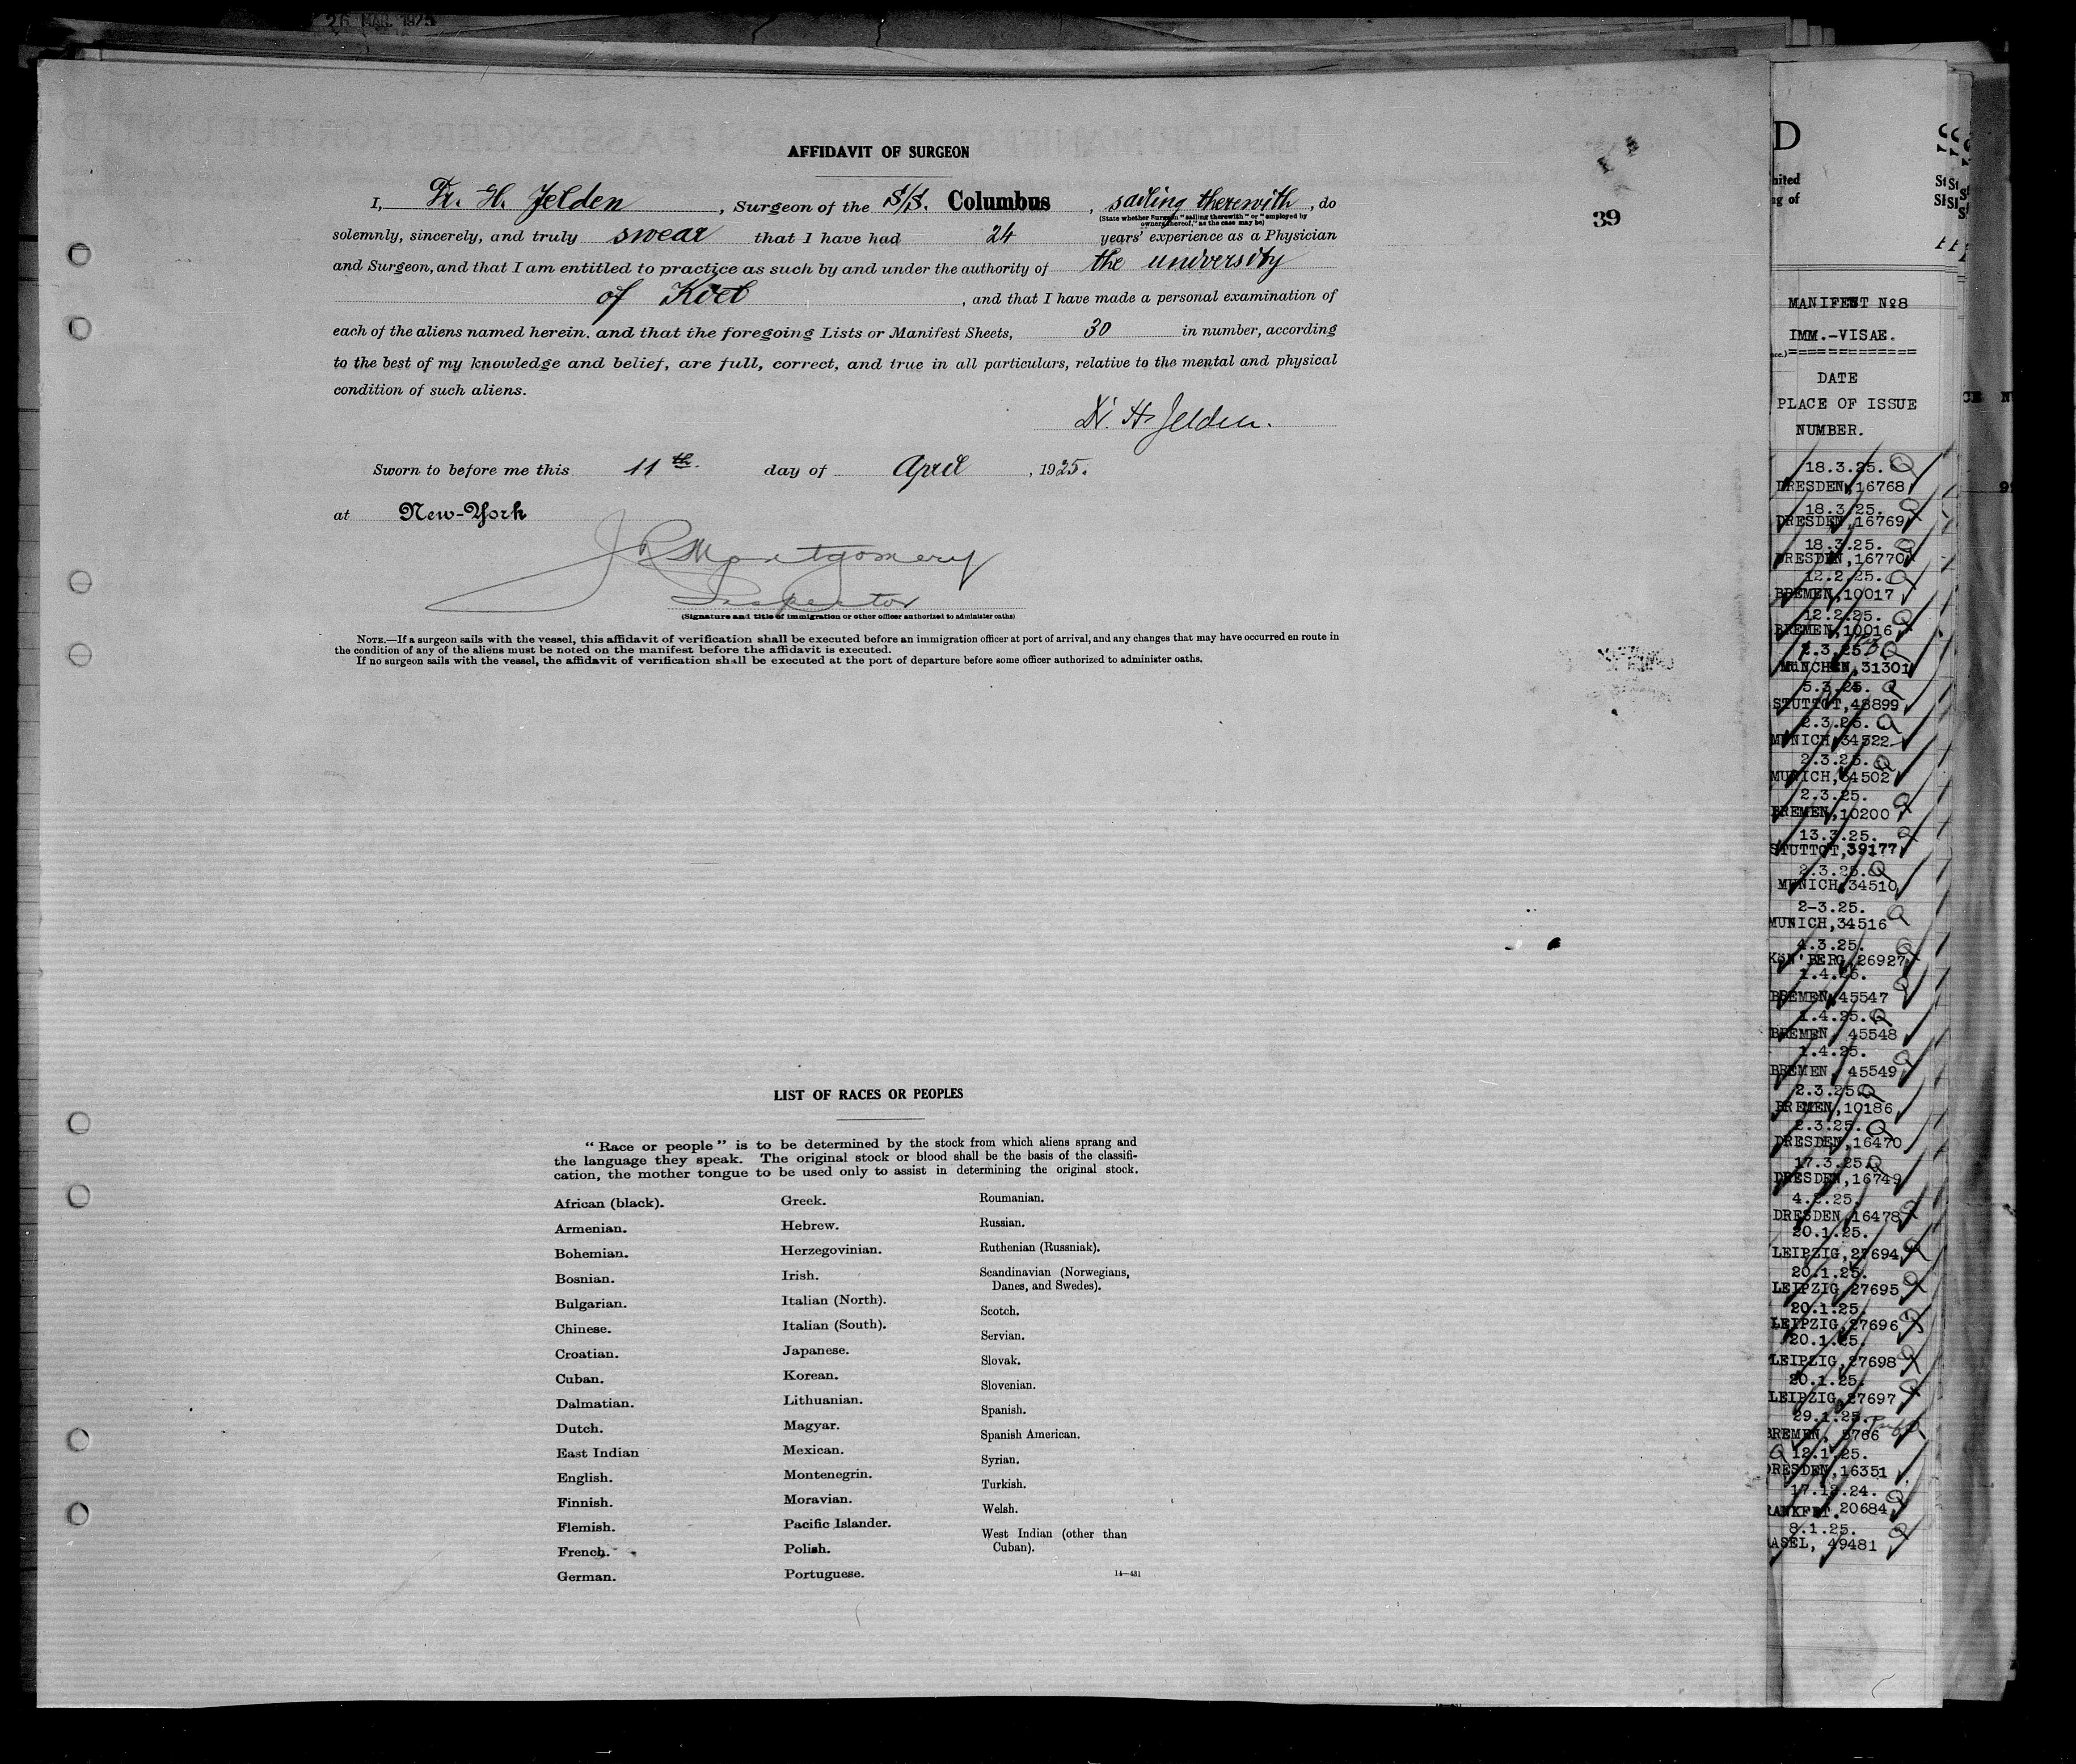 26 MAR. 1925
AFFIDAVIT OF SURGEON
I, Dr. H. Jelden, Surgeon of the S/S. Columbus, sailing therewith, do
(State whether Surgeon "sailing therewith" or "employed by
owners thereof," as the case may be)
39
solemnly, sincerely, and truly swear that I have had 24 years' experience as a Physician
and Surgeon, and that I am entitled to practice as such by and under the authority of the university
of Kiel, and that I have made a personal examination of
each of the aliens named herein, and that the foregoing Lists or Manifest Sheets, 30 in number, according
to the best of my knowledge and belief, are full, correct, and true in all particulars, relative to the mental and physical
condition of such aliens.
Dr. H. Jelden.
Sworn to before me this 11th. day of April, 1925.
at New-York
J R Montgomery
Inspector
(Signature and title of immigration or other officer authorized to administer oaths)
NOTE.—If a surgeon sails with the vessel, this affidavit of verification shall be executed before an immigration officer at port of arrival, and any changes that may have occurred en route in
the condition of any of the aliens must be noted on the manifest before the affidavit is executed.
If no surgeon sails with the vessel, the affidavit of verification shall be executed at the port of departure before some officer authorized to administer oaths.
LIST OF RACES OR PEOPLES
"Race or people" is to be determined by the stock from which aliens sprang and
the language they speak. The original stock or blood shall be the basis of the classifi-
cation, the mother tongue to be used only to assist in determining the original stock.
African (black).
Armenian.
Bohemian.
Bosnian.
Bulgarian.
Chinese.
Croatian.
Cuban.
Dalmatian.
Dutch.
East Indian
English.
Finnish.
Flemish.
French.
German.
Greek.
Hebrew.
Herzegovinian.
Irish.
Italian (North).
Italian (South).
Japanese.
Korean.
Lithuanian.
Magyar.
Mexican.
Montenegrin.
Moravian.
Pacific Islander.
Polish.
Portuguese.
Roumanian.
Russian.
Ruthenian (Russniak).
Scandinavian (Norwegians,
Danes, and Swedes).
Scotch.
Servian.
Slovak.
Slovenian.
Spanish.
Spanish American.
Syrian.
Turkish.
Welsh.
West Indian (other than
Cuban).
14—431
D
MANIFEST No8
IMM.-VISAE.
=============
DATE
PLACE OF ISSUE
NUMBER.
18.3.25.
DRESDEN,16768
18.3.25.
DRESDEN,16769
18.3.25.
DRESDEN,16770
12.2.25.
BREMEN,10017
12.2.25.
BREMEN,10016
2.3.25
MüNCHEN,31301
5.3.25.
STUTTGT,48899
2.3.25.
MUNICH,34522
2.3.25.
MUNICH,34502
2.3.25.
BREMEN,10200
13.3.25.
STUTTGT,39177
2.3.25.
MUNICH,34510
2-3.25.
MUNICH,34516
4.3.25.
KöN'BERG,26927
1.4.25.
BREMEN,45547
1.4.25.
BREMEN, 45548
1.4.25.
BREMEN, 45549
2.3.25
BREMEN,10186
2.3.25.
DRESDEN,16470
17.3.25
DRESDEN,16749
4.2.25.
DRESDEN,16478
20.1.25.
LEIPZIG,27694
20.1.25.
LEIPZIG,27695
20.1.25.
LEIPZIG,27696
20.1.25.
LEIPZIG,27698
20.1.25.
LEIPZIG,27697
29.1.25.
BREMEN, 5766
12.1.25.
DRESDEN,16351
17.12.24.
RANKFRT.20684
8.1.25.
ASEL, 49481